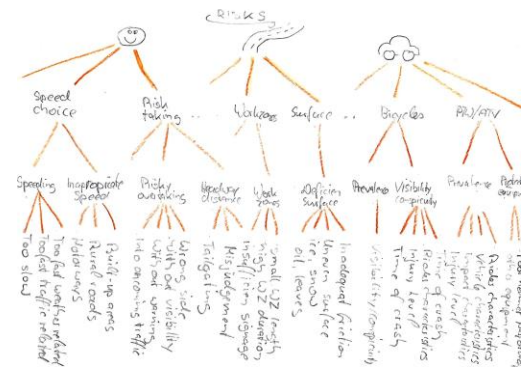 RISKS
Speed choice
Risk taking
Workzones
Surface ..
Bicycles
Speeding
Inappropriate speed
Risky overtaking
Headway distance
Work zones
Deficien surface
Prevalence
Visibility conspicuity
Prevalence
Too slow
Too fast traffic related
Too fast weather related
Motorways
Rural roads
Built-up areas
Into oncoming traffic
Without warning
Without visibility
Wrong side
Tailgating
Misjudgement
Insufficien signage
high WZ duration
small WZ length
oil, leaves
ice, snow
Uneven surface
Inadequat friction
Visibility/conspicuity
Time of crash
Injury level
Rider characteristics
Time of crash
Injury level
Impact characteristics
Vehicle characteristics
Rider characteristics